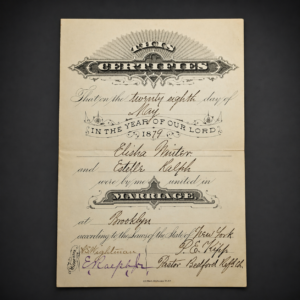 THIS
CERTIFIES
That on the twenty eighth day of
May
IN THE YEAR OF OUR LORD
1879
Elisha Winter
and Estella Ralph
were by me united in
MARRIAGE
at Brooklyn
according to the Laws of the State of New York
Pastor Bedford